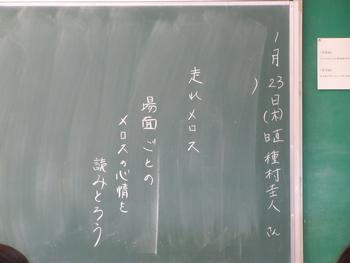 1月23日(木)日直 種村圭人さん
走れメロス
場面ごとの
メロスの心情を
読みとろう